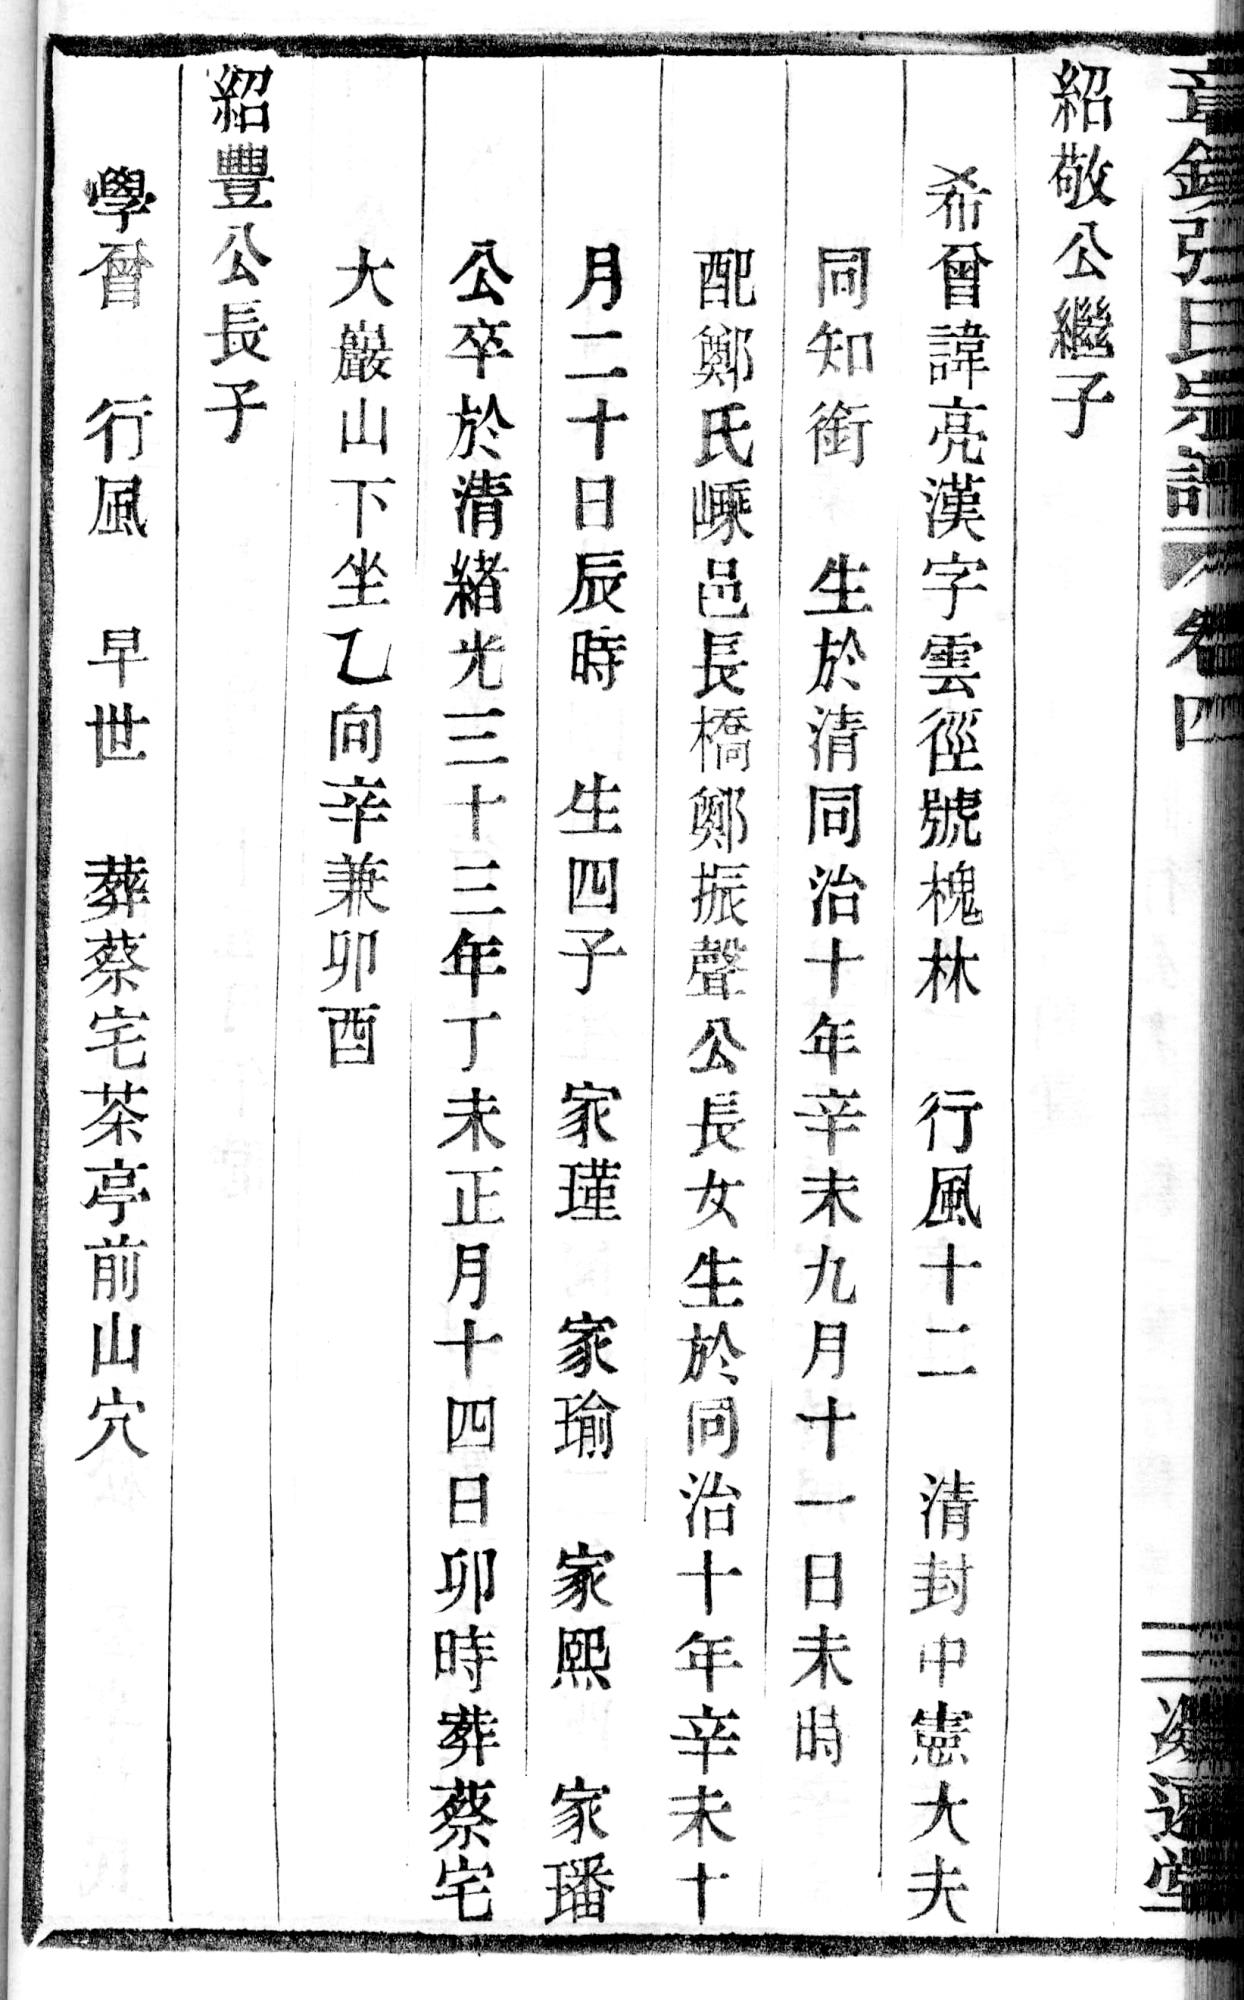 張氏宗譜 卷四
紹敬公繼子
希曾諱亮漢字雲徑號槐林 行風十二 清封中憲大夫
同知銜 生於清同治十年辛未九月十一日未時
配鄭氏嵊邑長橋鄭振聲公長女生於同治十年辛未十
月二十日辰時 生四子 家瑾 家瑜 家熙 家璠
公卒於清緒光三十三年丁未正月十四日卯時葬蔡宅
大巖山下坐乙向辛兼卯酉
紹豐公長子
學曾 行風 早世 葬蔡宅茶亭前山穴